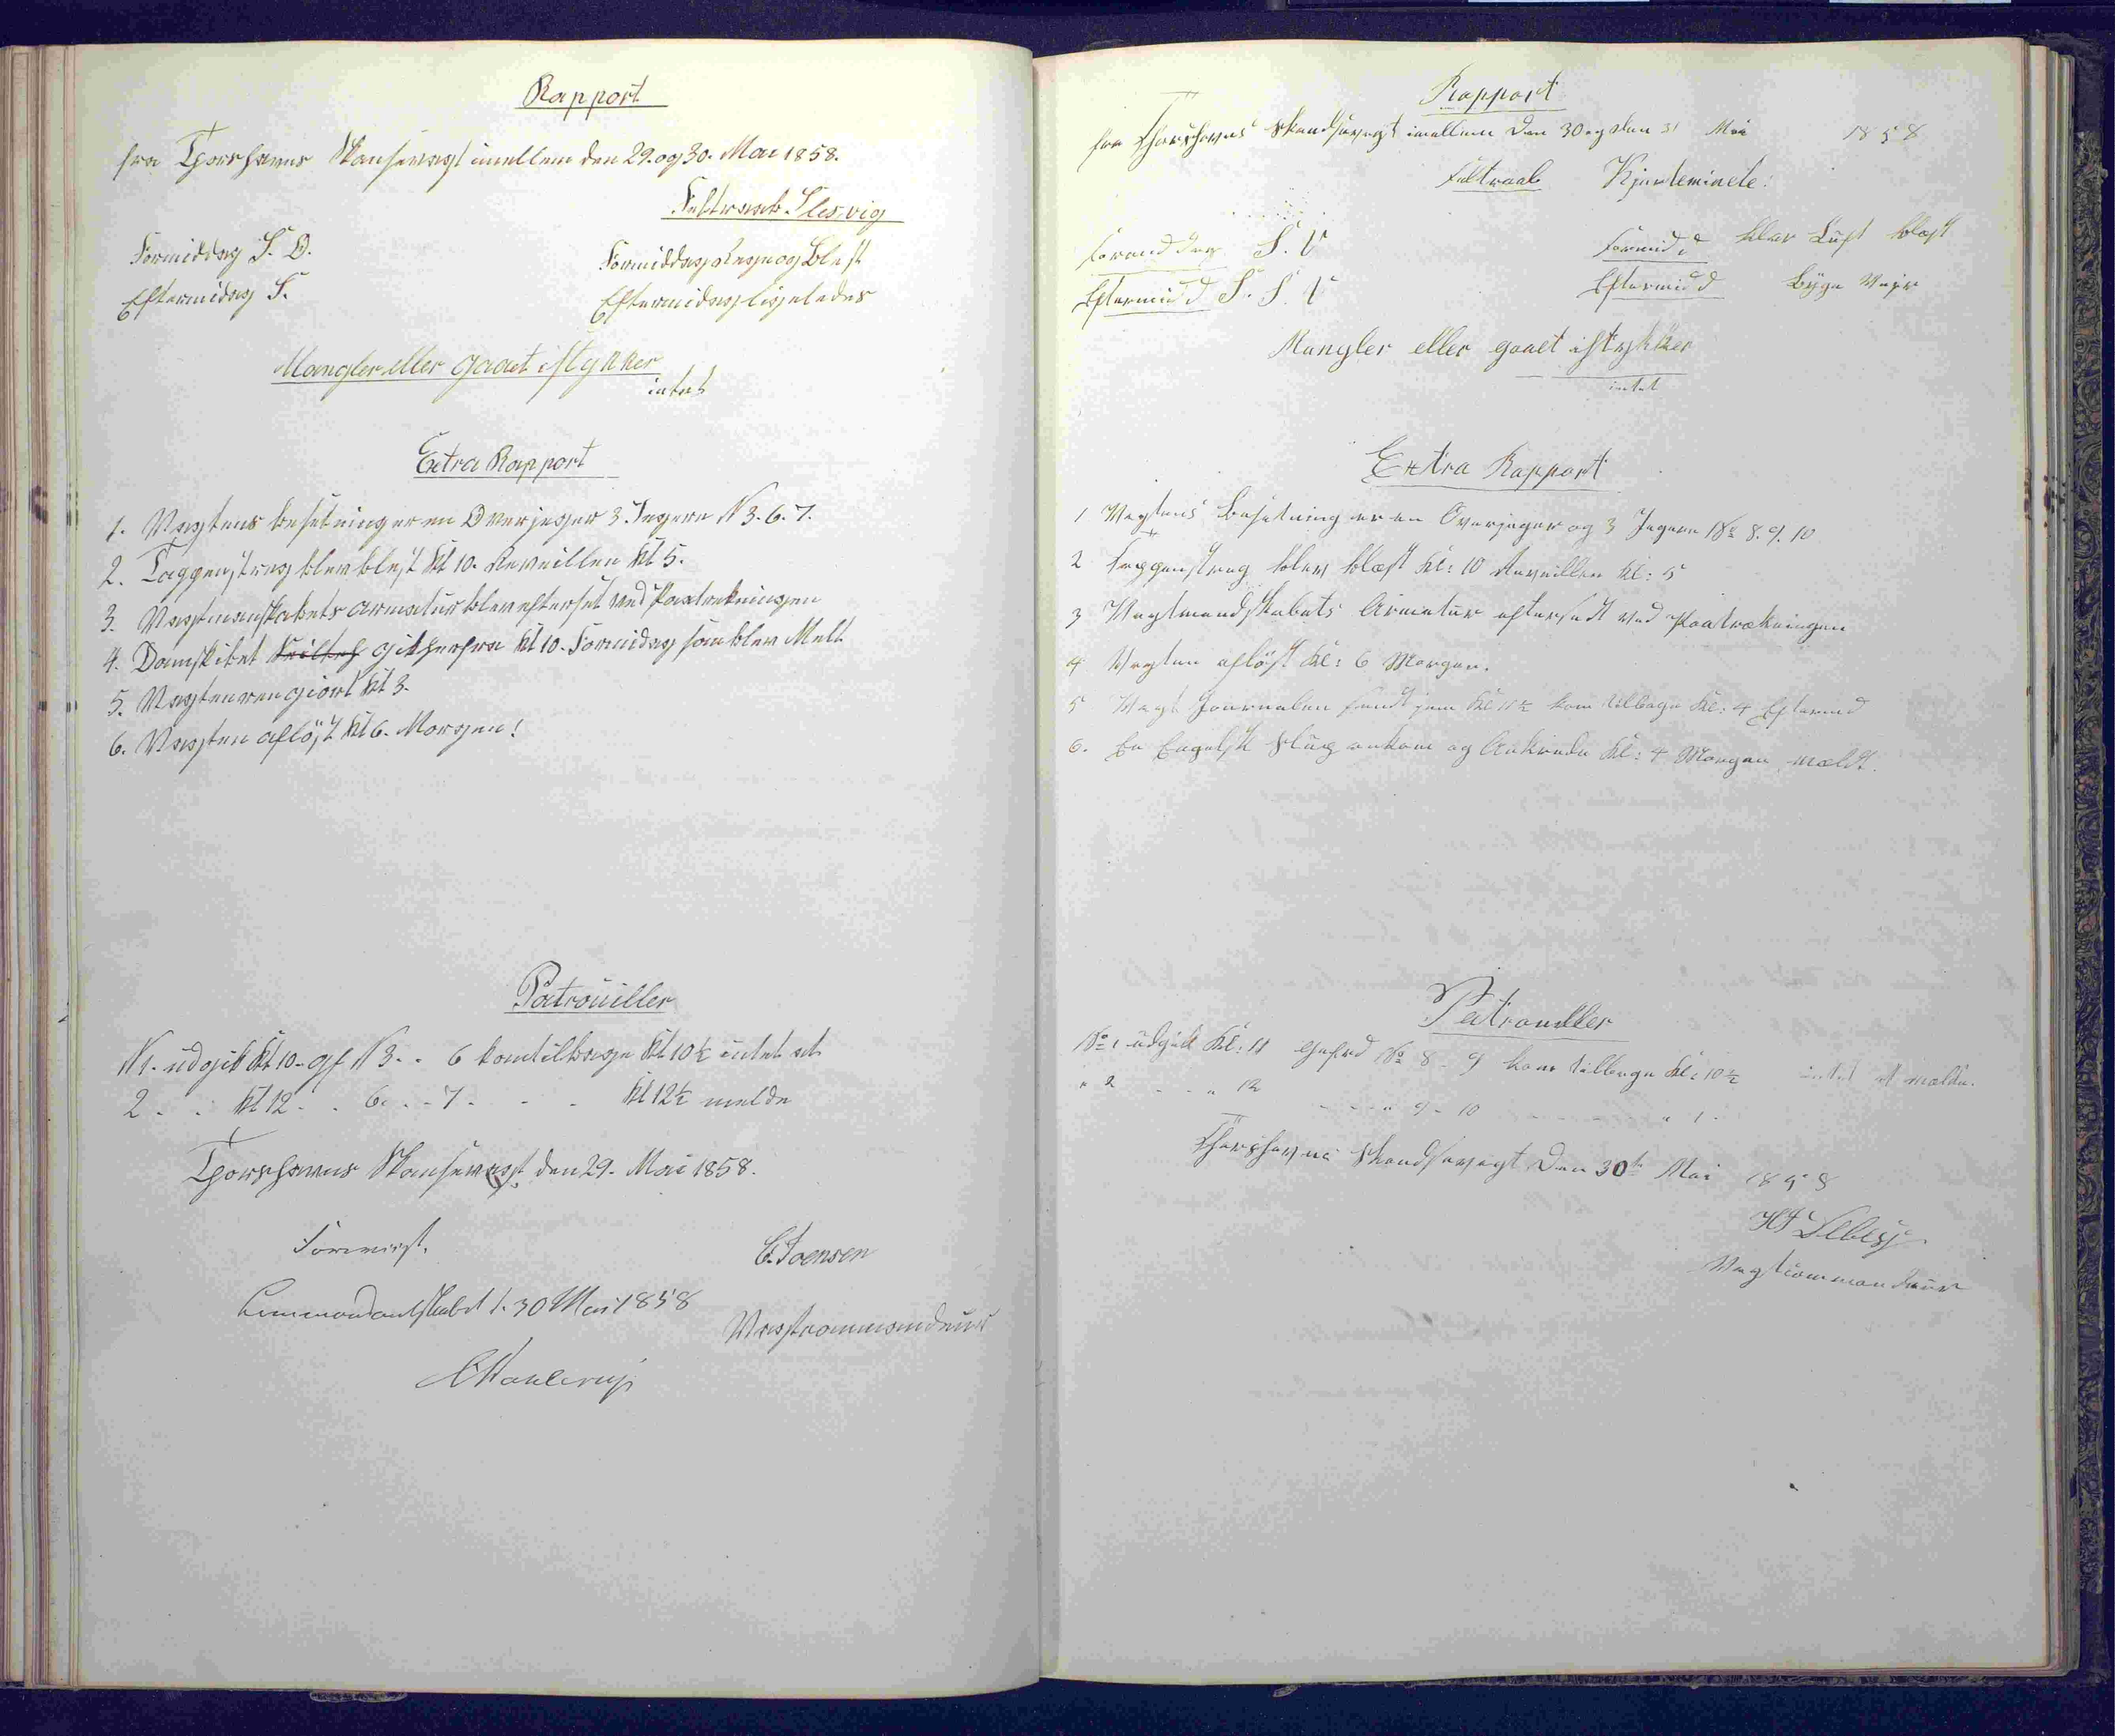 Rapport
fra Thorshavns Skansevagt imellem den 29. og 30. Mai 1858.
Feltraab Slesvig
Formiddag S. O.
Formiddag Regn og Blest
Eftermidag S.
Eftermidag ligeledes
Mangler eller gaaet i stykker
intet
Extra Rapport
1. Vagtens besetning er en Overjeger 3. Jegere N 3. 6. 7.
2. Taggenstreg blev blest Kl 10. Reveillen Kl 5.
3. Vagtmanskabets armatur blev efterset ved Paatrekningen
4. Damskibet gik herfra Kl 10. Formidag som blev Melt
5. Vagten rengiort Kl 3.
6. Vagten afløst Kl 6. Morgen!
Patrouiller
N 1. udgik Kl 10. gf N 3. - 6 kom tilbage Kl 10½ intet at
2 - - Kl 12 - - 6. - 7 - - - Kl 12½ melde
Thorshavns Skansevagt den 29. Mai 1858.
Forevist.
C. Joensen
Commandantskabet d. 30 Mai 1858
Vagtcommandeur
Rapport
fra Thorshavns Skandsevagt imellem den 30 og den 31 Mai 1858
Feltraab Kjerteminde.
Formiddag S. V
Formidd klar Luft blæst
Eftermidd S. S. V
Eftermidd Byge Vejr
Mangler eller gaaet istykker
intet
Extra Rapport
1 Vagtens Besætning er en Overjæger og 3 Jægere No 8. 9. 10
2 Taggenstreg blev blæst Kl: 10 Reveillen Kl: 5
3 Vagtmandskabets Armatur eftersedt ved Paatrækningen
4 Vagten afløst Kl: 6 Morgen.
5 Vagt Journalen sendt hjem Kl 11½ kom tilbage Kl: 4 Eftermd
6. En Engelsk Slup ankom og Ankrede Kl: 4 Morgen meldt.
Patrouiller
No 1 udgik Kl: 11 Gefrd No 8 - 9 kom tilbage Kl: 10½ intet at melde.
" 2 - - " 12 - - - " 9 - 10 - - - - " 1 -
Thorshavns Skandsevagt den 30te Mai 1858
Vagtcommandeur